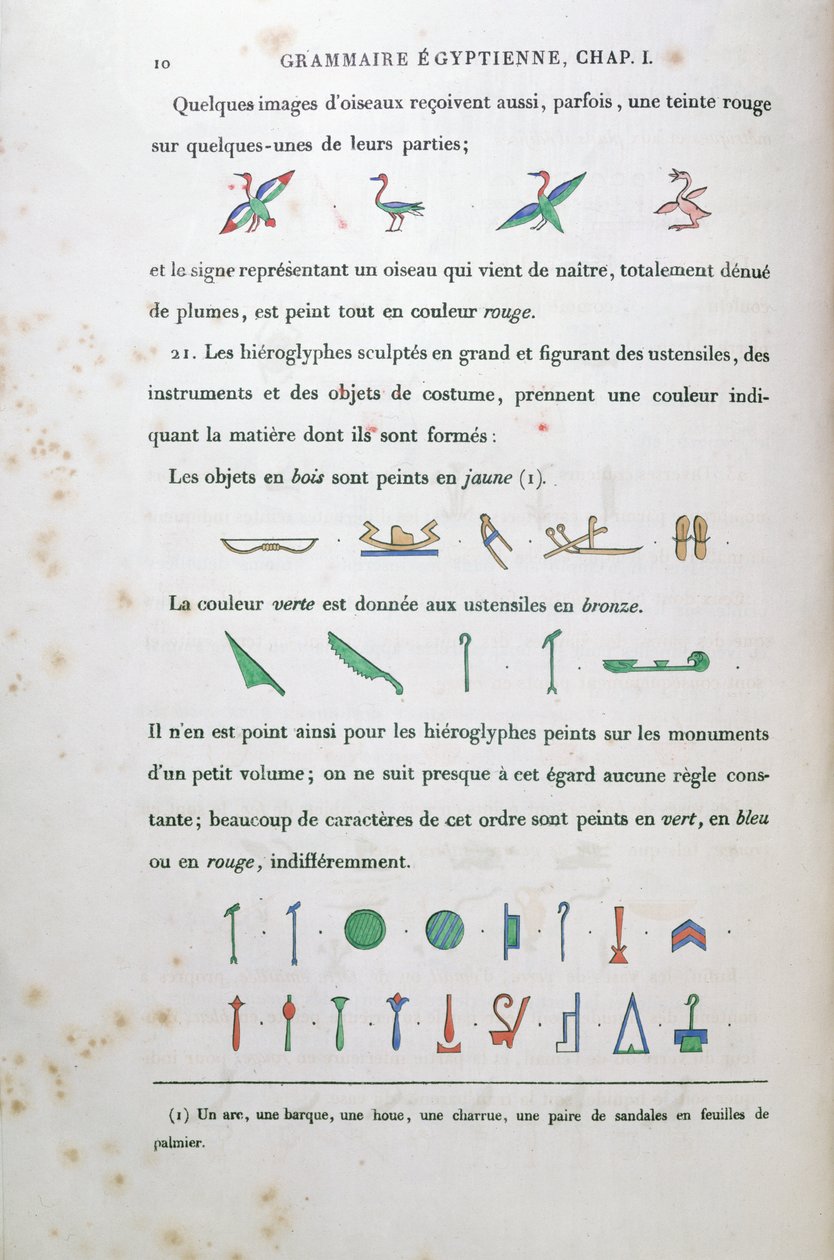 10 GRAMMAIRE ÉGYPTIENNE, CHAP. I.
Quelques images d'oiseaux reçoivent aussi, parfois, une teinte rouge
sur quelques-unes de leurs parties;
et le signe représentant un oiseau qui vient de naître, totalement dénué
de plumes, est peint tout en couleur rouge.
21. Les hiéroglyphes sculptés en grand et figurant des ustensiles, des
instruments et des objets de costume, prennent une couleur indi-
quant la matière dont ils sont formés :
Les objets en bois sont peints en jaune (1).
La couleur verte est donnée aux ustensiles en bronze.
Il n'en est point ainsi pour les hiéroglyphes peints sur les monuments
d'un petit volume; on ne suit presque à cet égard aucune règle cons-
tante; beaucoup de caractères de cet ordre sont peints en vert, en bleu
ou en rouge, indifféremment.
(1) Un arc, une barque, une houe, une charrue, une paire de sandales en feuilles de
palmier.